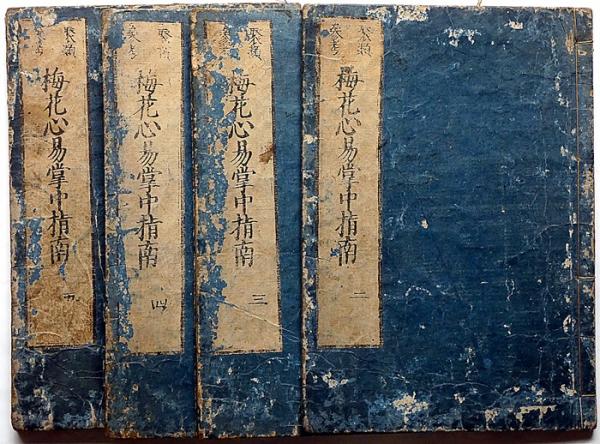 聚類
参考
梅花心易掌中指南
二
聚類
参考
梅花心易掌中指南
三
聚類
参考
梅花心易掌中指南
四
聚類
参考
梅花心易掌中指南
五